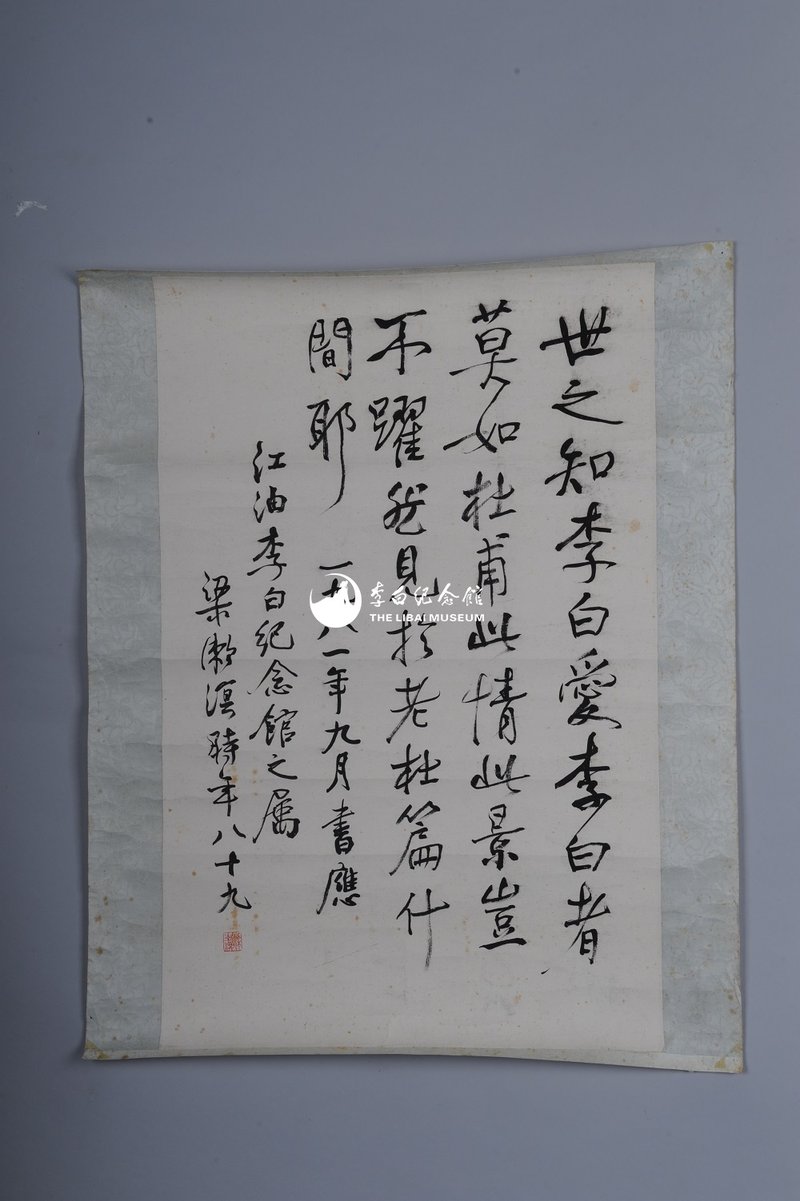 世之知李白愛李白者
莫如杜甫此情此景豈
不躍然見於老杜篇什
間耶 一九八一年九月書應
江油李白纪念館之属
梁漱溟時年八十九
李白纪念館
THE LIBAI MUSEUM